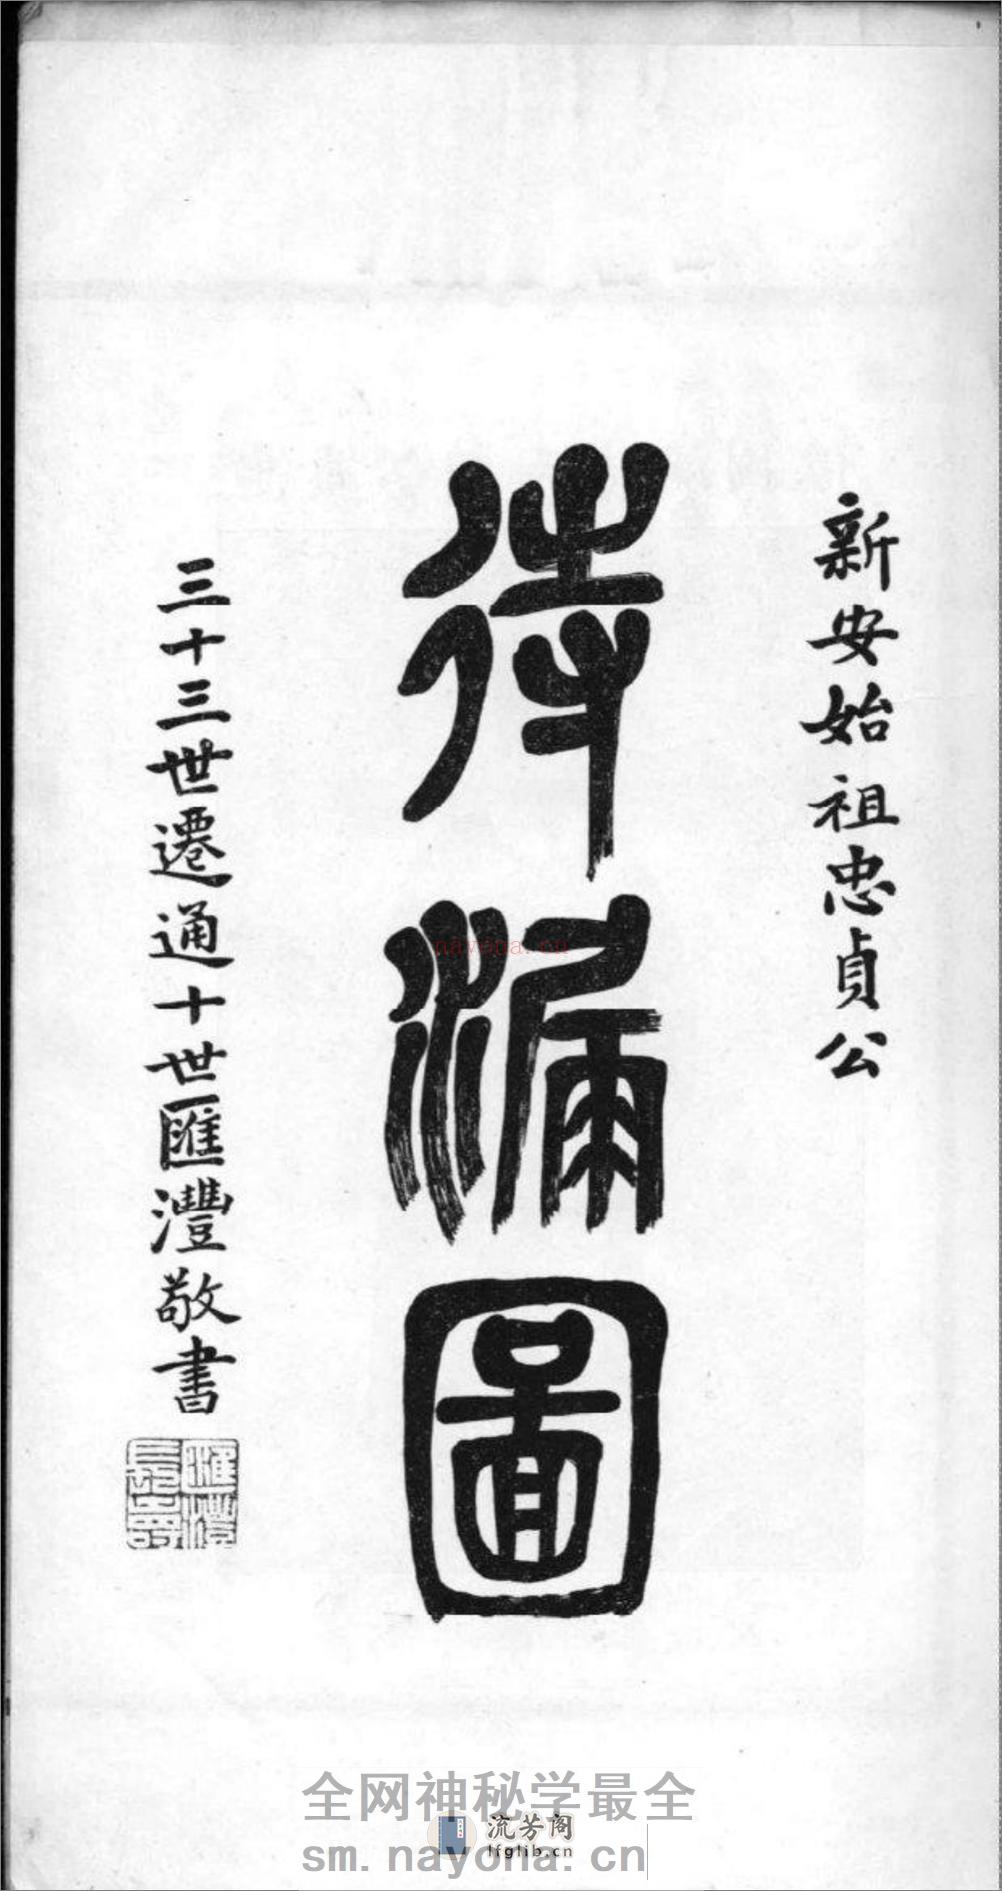 新安始祖忠貞公
待漏圖
三十三世遷通十世匯灃敬書
nayona.cn
全网神秘学最全
流芳阁
lfglib.cn
sm.nayona.cn